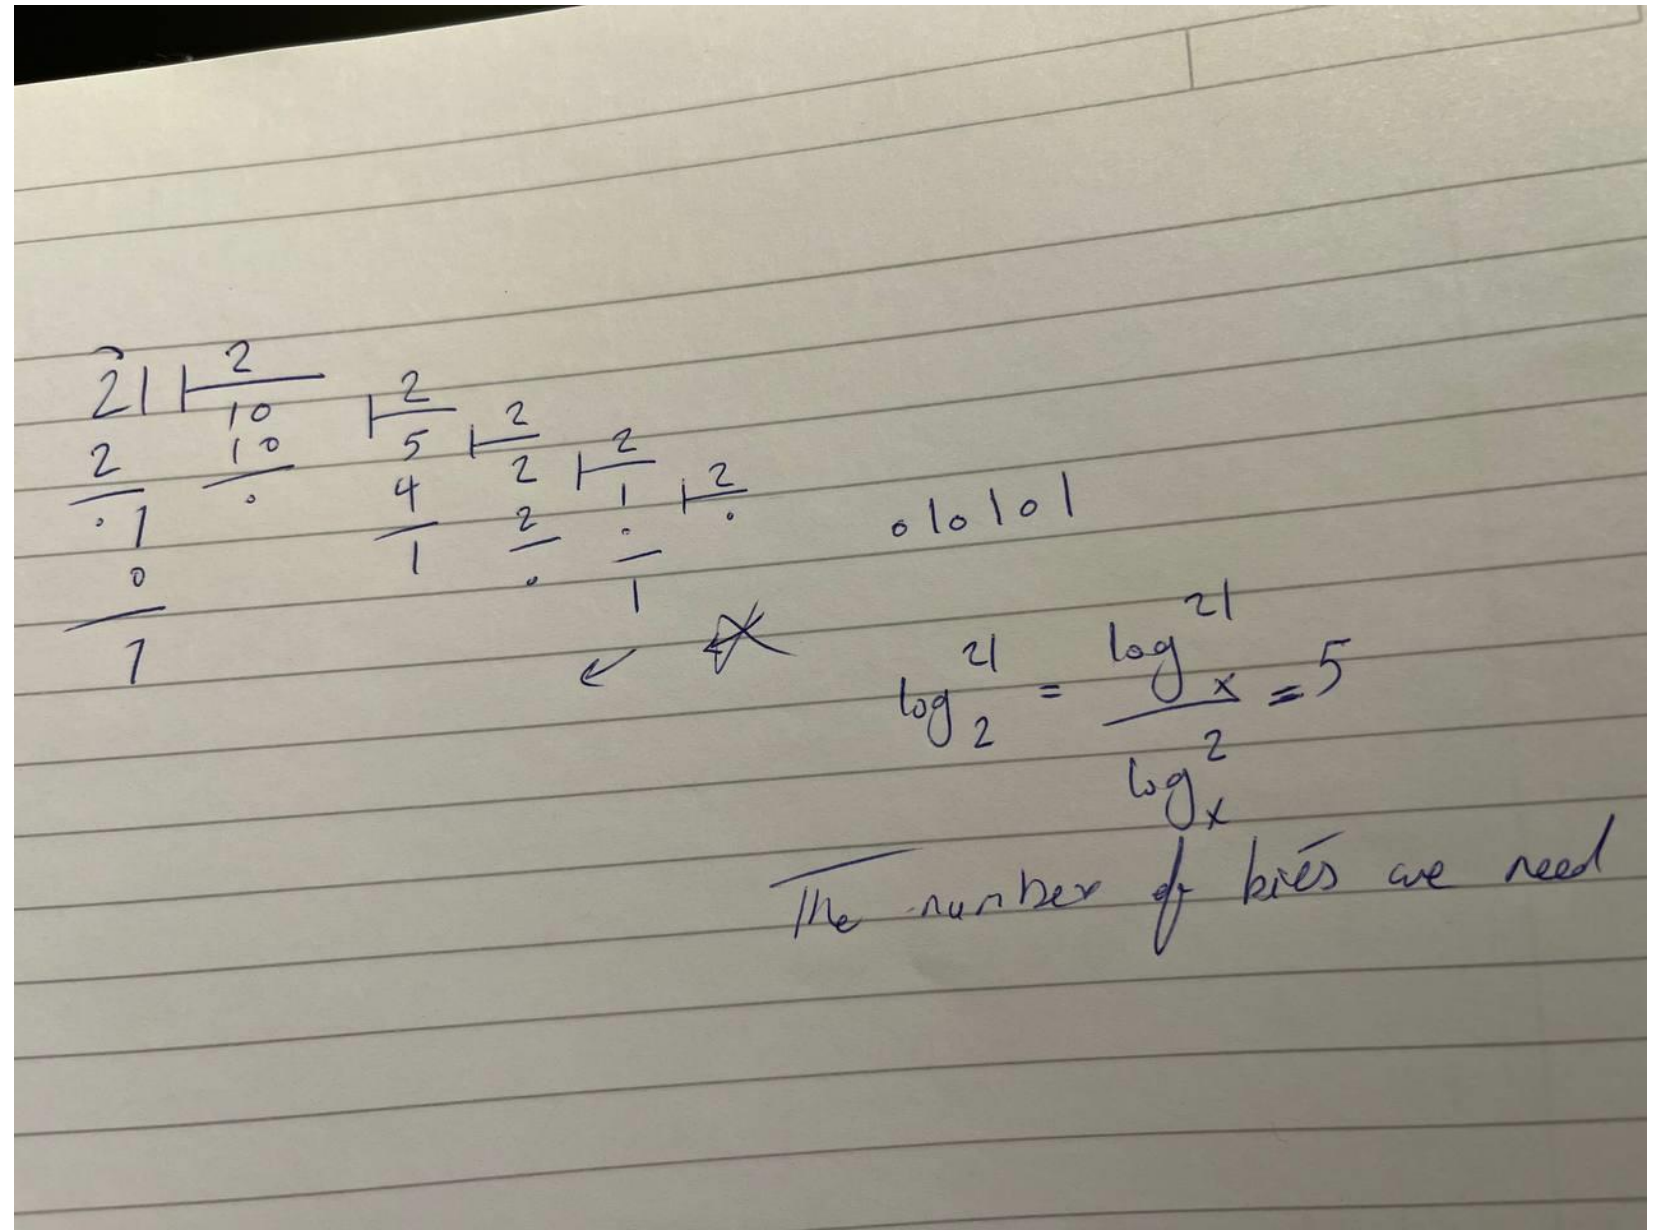 21 | 2
10 | 2
2 10 5 | 2
. 1 . 4 2 | 2
0 1 2 1 | 2
1 . . .
1
010101
log₂²¹ = logₓ²¹ / logₓ² = 5
The number of bits we need